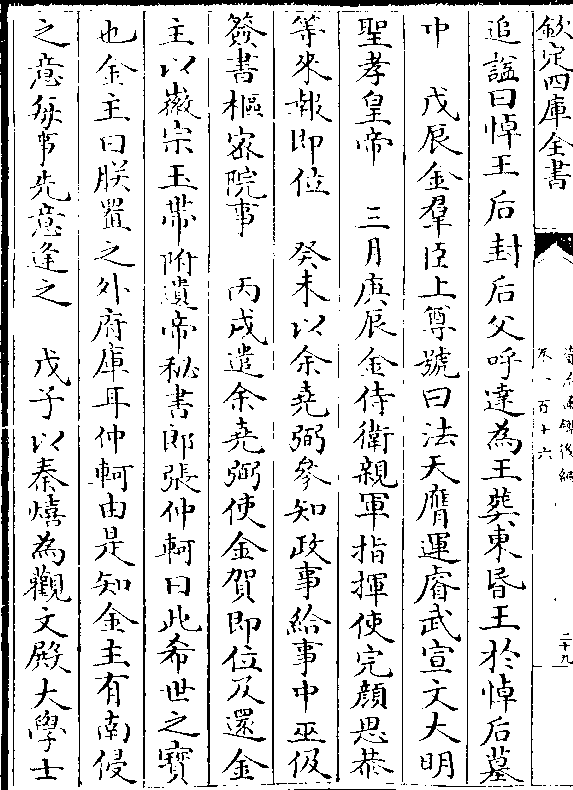 欽定四庫全書
資治通鑑後編
卷一百十六
二十九
追諡曰悼王后封后父呼達為王葬東昏王於悼后墓
中　戊辰金羣臣上尊號曰法天膺運睿武宣文大明
聖孝皇帝　三月庚辰金侍衛親軍指揮使完顔思恭
等來報即位　癸未以余堯弼參知政事給事中巫伋
簽書樞宻院事　丙戌遣余堯弼使金賀即位及還金
主以徽宗玉帶附遺帝秘書郎張仲軻曰此希世之寳
也金主曰朕置之外府庫耳仲軻由是知金主有南侵
之意每事先意逢之　戊子以秦熺為觀文殿大學士